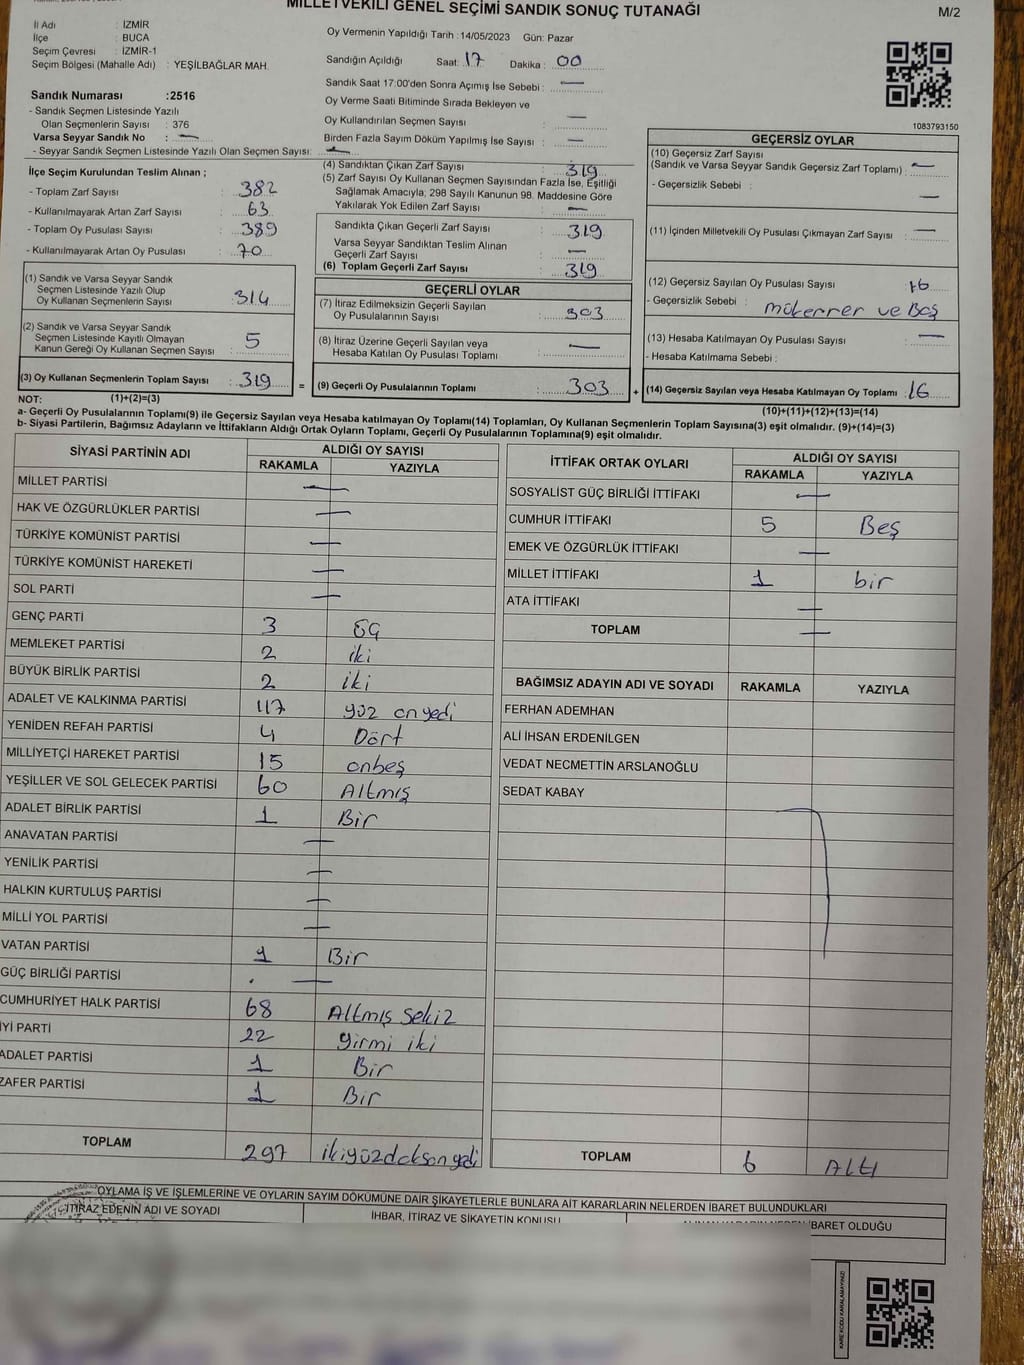 MİLLETVEKİLİ GENEL SEÇİMİ SANDIK SONUÇ TUTANAĞI
M/2
İl Adı : İZMİR
İlçe : BUCA
Seçim Çevresi : İZMİR-1
Seçim Bölgesi (Mahalle Adı) : YEŞİLBAĞLAR MAH.
Sandık Numarası :2516
- Sandık Seçmen Listesinde Yazılı
Olan Seçmenlerin Sayısı : 376
Varsa Seyyar Sandık No : —
- Seyyar Sandık Seçmen Listesinde Yazılı Olan Seçmen Sayısı: —
İlçe Seçim Kurulundan Teslim Alınan ;
- Toplam Zarf Sayısı : 382
- Kullanılmayarak Artan Zarf Sayısı : 63
- Toplam Oy Pusulası Sayısı : 389
- Kullanılmayarak Artan Oy Pusulası : 70
(1) Sandık ve Varsa Seyyar Sandık
Seçmen Listesinde Yazılı Olup
Oy Kullanan Seçmenlerin Sayısı : 314
(2) Sandık ve Varsa Seyyar Sandık
Seçmen Listesinde Kayıtlı Olmayan
Kanun Gereği Oy Kullanan Seçmen Sayısı : 5
(3) Oy Kullanan Seçmenlerin Toplam Sayısı : 319
Oy Vermenin Yapıldığı Tarih : 14/05/2023 Gün: Pazar
Sandığın Açıldığı Saat: 17 Dakika : 00
Sandık Saat 17:00'den Sonra Açılmış İse Sebebi : —
Oy Verme Saati Bitiminde Sırada Bekleyen ve
Oy Kullandırılan Seçmen Sayısı : —
Birden Fazla Sayım Döküm Yapılmış İse Sayısı : —
(4) Sandıktan Çıkan Zarf Sayısı : 319
(5) Zarf Sayısı Oy Kullanan Seçmen Sayısından Fazla İse, Eşitliği
Sağlamak Amacıyla, 298 Sayılı Kanunun 98. Maddesine Göre
Yakılarak Yok Edilen Zarf Sayısı : —
Sandıkta Çıkan Geçerli Zarf Sayısı : 319
Varsa Seyyar Sandıktan Teslim Alınan
Geçerli Zarf Sayısı : —
(6) Toplam Geçerli Zarf Sayısı : 319
GEÇERLİ OYLAR
(7) İtiraz Edilmeksizin Geçerli Sayılan
Oy Pusulalarının Sayısı : 303
(8) İtiraz Üzerine Geçerli Sayılan veya
Hesaba Katılan Oy Pusulası Toplamı : —
= (9) Geçerli Oy Pusulalarının Toplamı : 303
1083793150
GEÇERSİZ OYLAR
(10) Geçersiz Zarf Sayısı
(Sandık ve Varsa Seyyar Sandık Geçersiz Zarf Toplamı) : —
- Geçersizlik Sebebi : —
(11) İçinden Milletvekili Oy Pusulası Çıkmayan Zarf Sayısı : —
(12) Geçersiz Sayılan Oy Pusulası Sayısı : 16
- Geçersizlik Sebebi : mükerrer ve Boş
(13) Hesaba Katılmayan Oy Pusulası Sayısı : —
- Hesaba Katılmama Sebebi :
+ (14) Geçersiz Sayılan veya Hesaba Katılmayan Oy Toplamı : 16
NOT: (1)+(2)=(3)
(10)+(11)+(12)+(13)=(14)
a- Geçerli Oy Pusulalarının Toplamı(9) ile Geçersiz Sayılan veya Hesaba katılmayan Oy Toplamı(14) Toplamları, Oy Kullanan Seçmenlerin Toplam Sayısına(3) eşit olmalıdır. (9)+(14)=(3)
b- Siyasi Partilerin, Bağımsız Adayların ve İttifakların Aldığı Ortak Oyların Toplamı, Geçerli Oy Pusulalarının Toplamına(9) eşit olmalıdır.
SİYASİ PARTİNİN ADI ALDIĞI OY SAYISI
RAKAMLA YAZIYLA
MİLLET PARTİSİ —
HAK VE ÖZGÜRLÜKLER PARTİSİ —
TÜRKİYE KOMÜNİST PARTİSİ —
TÜRKİYE KOMÜNİST HAREKETİ —
SOL PARTİ —
GENÇ PARTİ 3 üç
MEMLEKET PARTİSİ 2 iki
BÜYÜK BİRLİK PARTİSİ 2 iki
ADALET VE KALKINMA PARTİSİ 117 yüz onyedi
YENİDEN REFAH PARTİSİ 4 Dört
MİLLİYETÇİ HAREKET PARTİSİ 15 onbeş
YEŞİLLER VE SOL GELECEK PARTİSİ 60 Altmış
ADALET BİRLİK PARTİSİ 1 Bir
ANAVATAN PARTİSİ —
YENİLİK PARTİSİ —
HALKIN KURTULUŞ PARTİSİ —
MİLLİ YOL PARTİSİ —
VATAN PARTİSİ 1 Bir
GÜÇ BİRLİĞİ PARTİSİ —
CUMHURİYET HALK PARTİSİ 68 Altmış Sekiz
İYİ PARTİ 22 yirmi iki
ADALET PARTİSİ 1 Bir
ZAFER PARTİSİ 1 Bir
TOPLAM 297 ikiyüzdoksanyedi
İTTİFAK ORTAK OYLARI ALDIĞI OY SAYISI
RAKAMLA YAZIYLA
SOSYALİST GÜÇ BİRLİĞİ İTTİFAKI —
CUMHUR İTTİFAKI 5 Beş
EMEK VE ÖZGÜRLÜK İTTİFAKI —
MİLLET İTTİFAKI 1 bir
ATA İTTİFAKI —
TOPLAM —
BAĞIMSIZ ADAYIN ADI VE SOYADI RAKAMLA YAZIYLA
FERHAN ADEMHAN
ALİ İHSAN ERDENİLGEN
VEDAT NECMETTİN ARSLANOĞLU
SEDAT KABAY
TOPLAM 6 Altı
OYLAMA İŞ VE İŞLEMLERİNE VE OYLARIN SAYIM DÖKÜMÜNE DAİR ŞİKAYETLERLE BUNLARA AİT KARARLARIN NELERDEN İBARET BULUNDUKLARI
İTİRAZ EDENİN ADI VE SOYADI
İHBAR, İTİRAZ VE ŞİKAYETİN KONUSU
İBARET OLDUĞU
KARE KODU KARALAMAYINIZ!